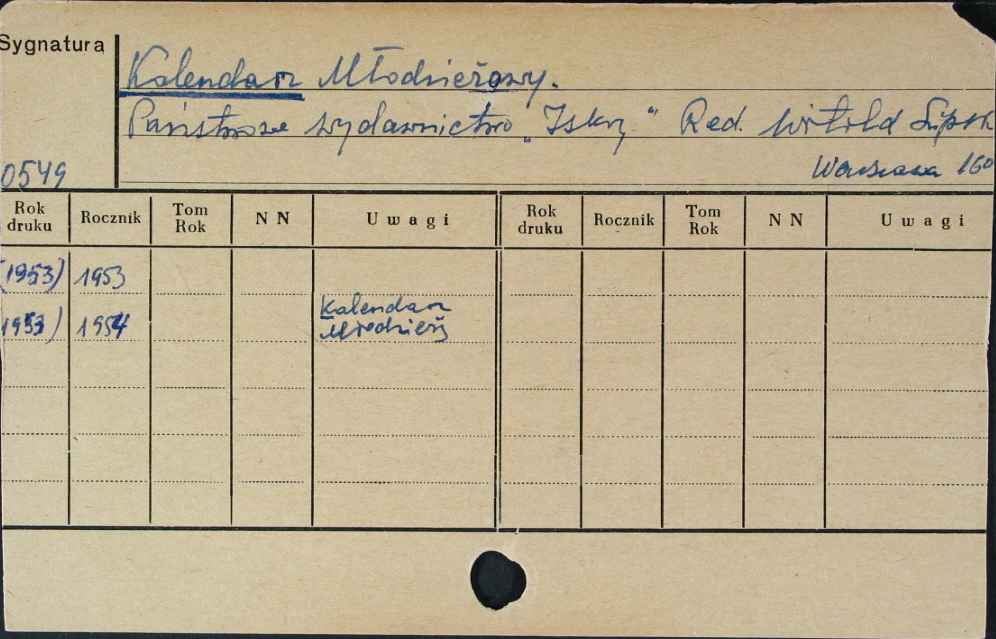 Sygnatura
Kalendarz Młodzieżowy.
Państwowe Wydawnictwo "Iskry" Red. Witold Lipsk
Warszawa 160
0549
Rok druku Rocznik Tom Rok NN Uwagi Rok druku Rocznik Tom Rok NN Uwagi
(1953) 1953
1953) 1954 Kalendarz
Młodzieży